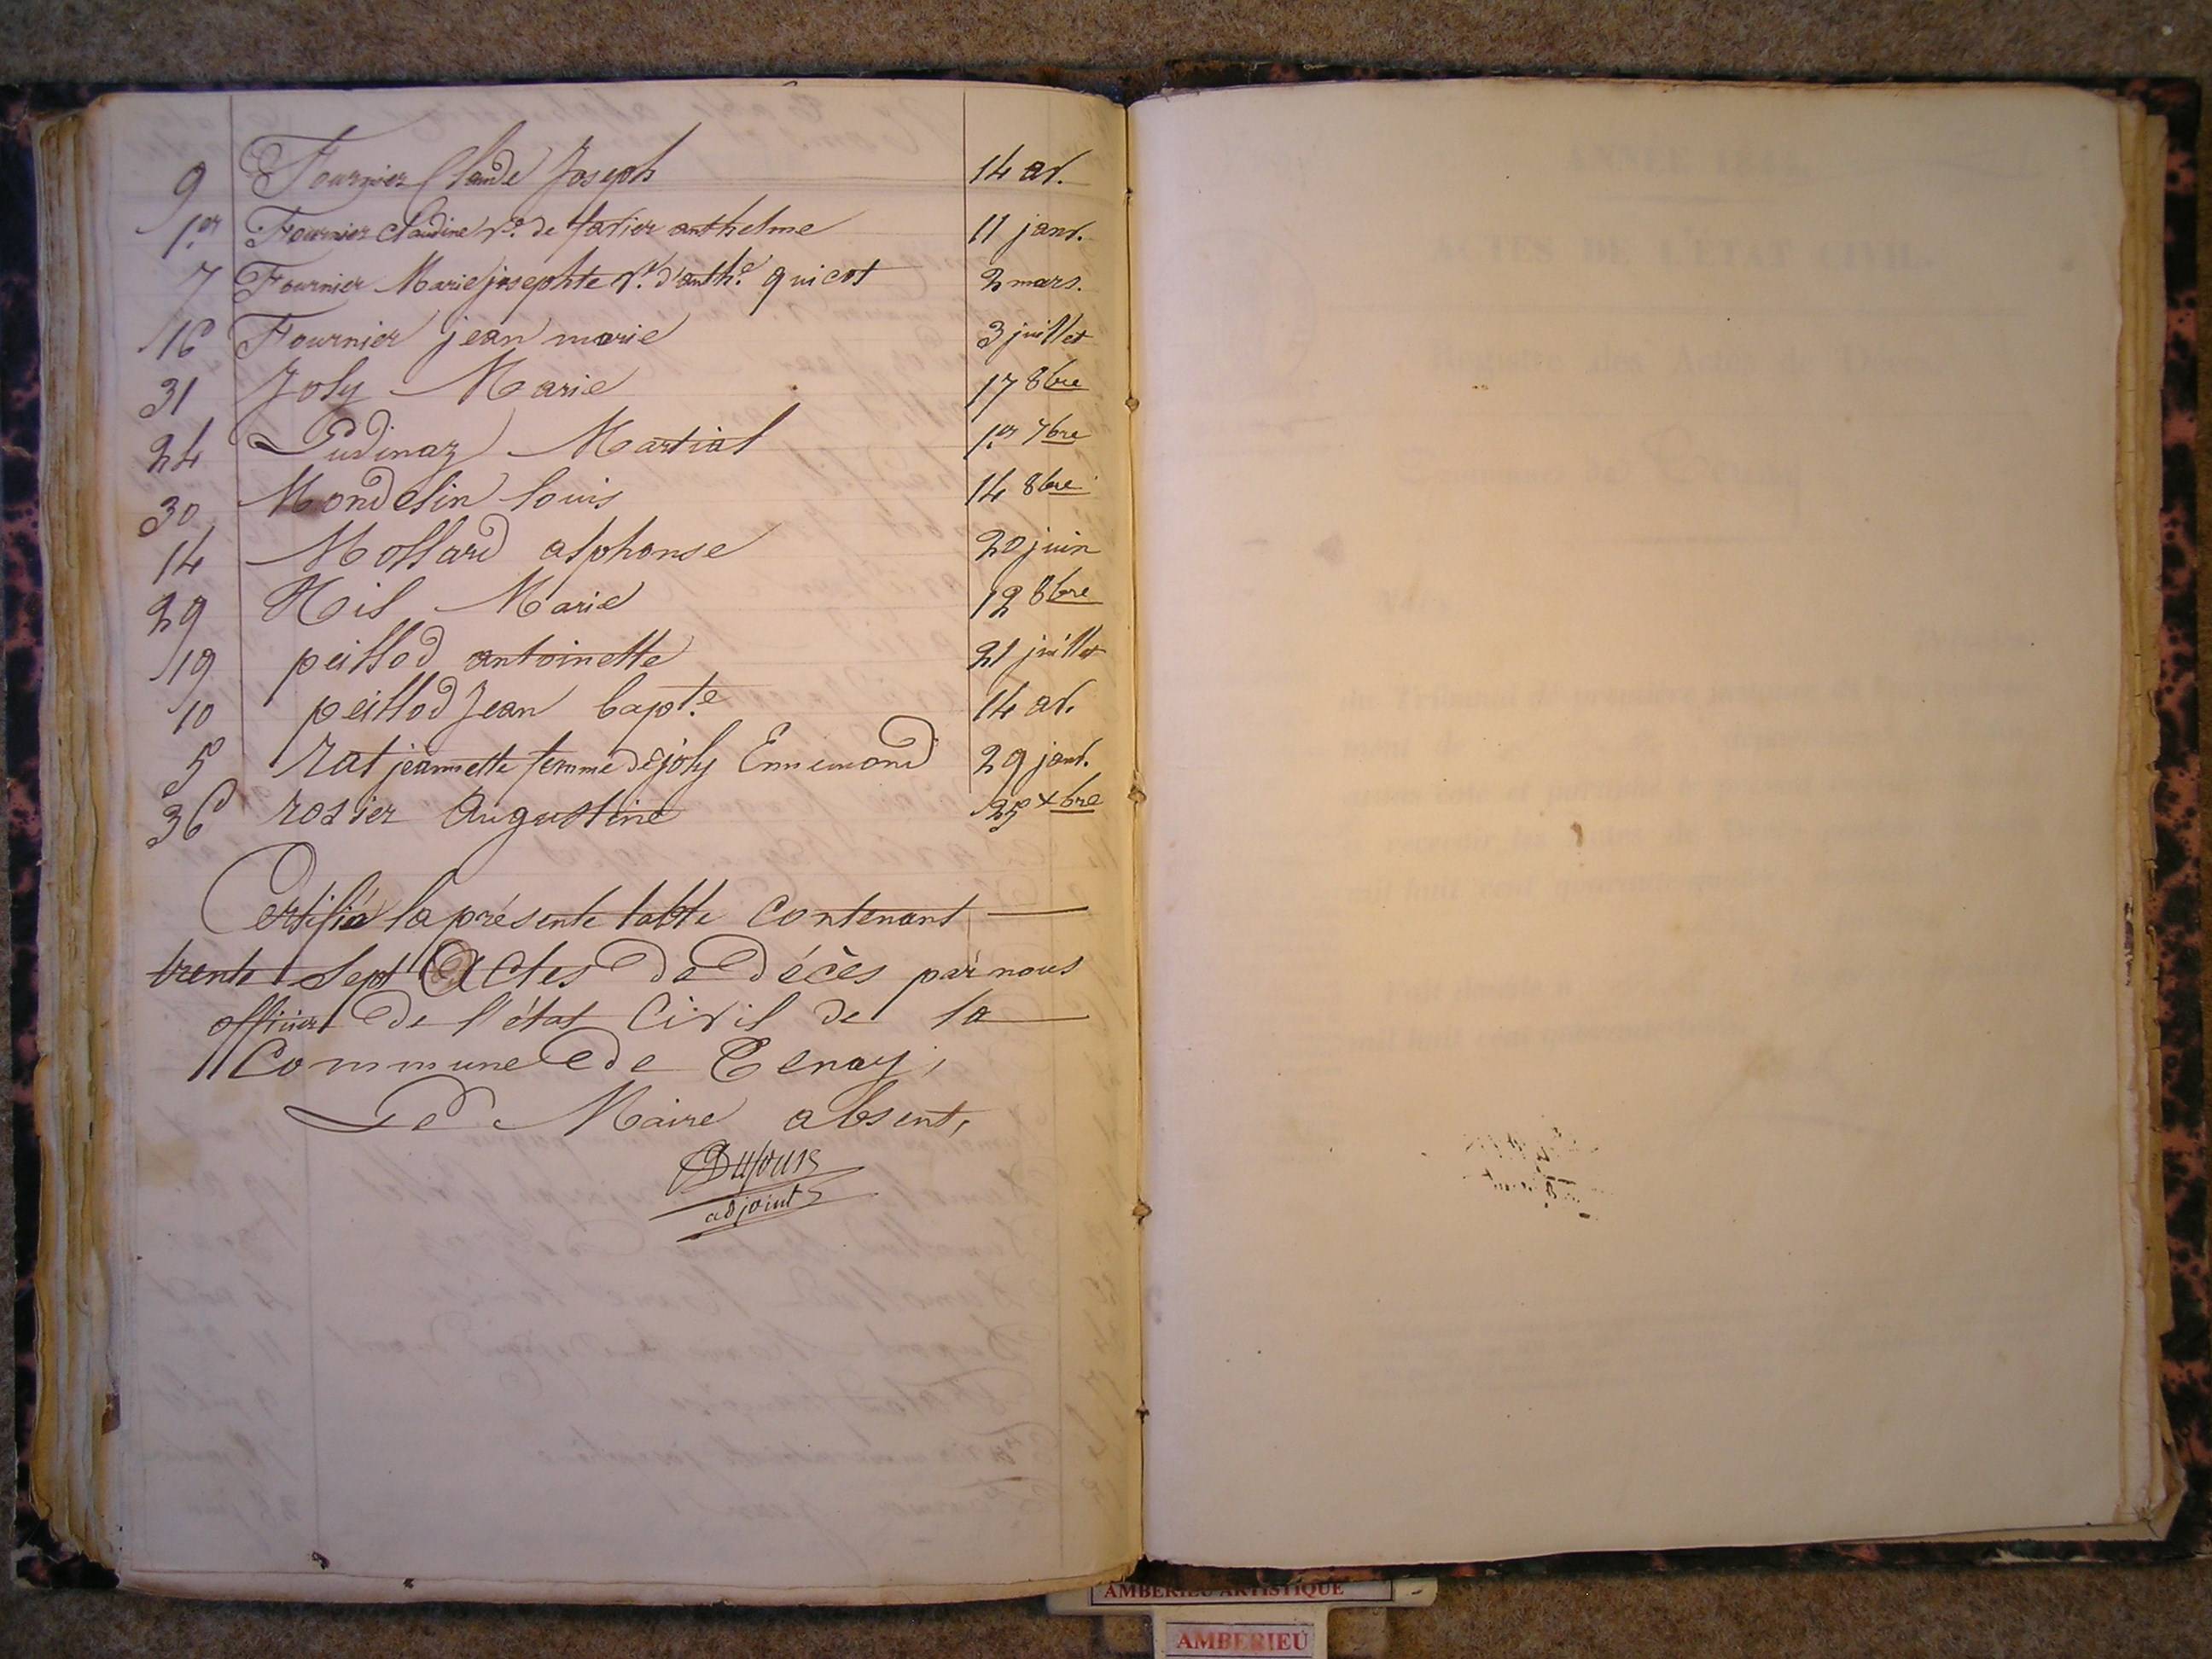 9 Fournier Claude Joseph 14 av.
1.er Fournier Claudine v.e de favier anthelme 11 janv.
7 Fournier Marie josephte v.e d'anth.e quicot 2 mars.
16 Fournier jean marie 3 juillet
31 Joly Marie 17 8bre
24 Pudinaz Martial 1.er 7bre
30 Mondelin louis 14 8bre
14 Mollard alphonse 20 juin
29 Marie 12 8bre
19 peillod antoinette 21 juillet
10 peillod Jean bapt.e 14 av.
5 rat jeannette femme de joly Ennemond 29 janv.
36 rosier Augustine 25 xbre
Certifié la présente table contenant
trente sept Actes de décès par nous
officier de l'état Civil de la
Commune de Tenay,
Le Maire absent,
Dufour
adjoint
ACTES DE L'ÉTAT CIVIL.
Registre des Actes de Décès
AMBERIEU ARTISTIQUE
AMBERIEU